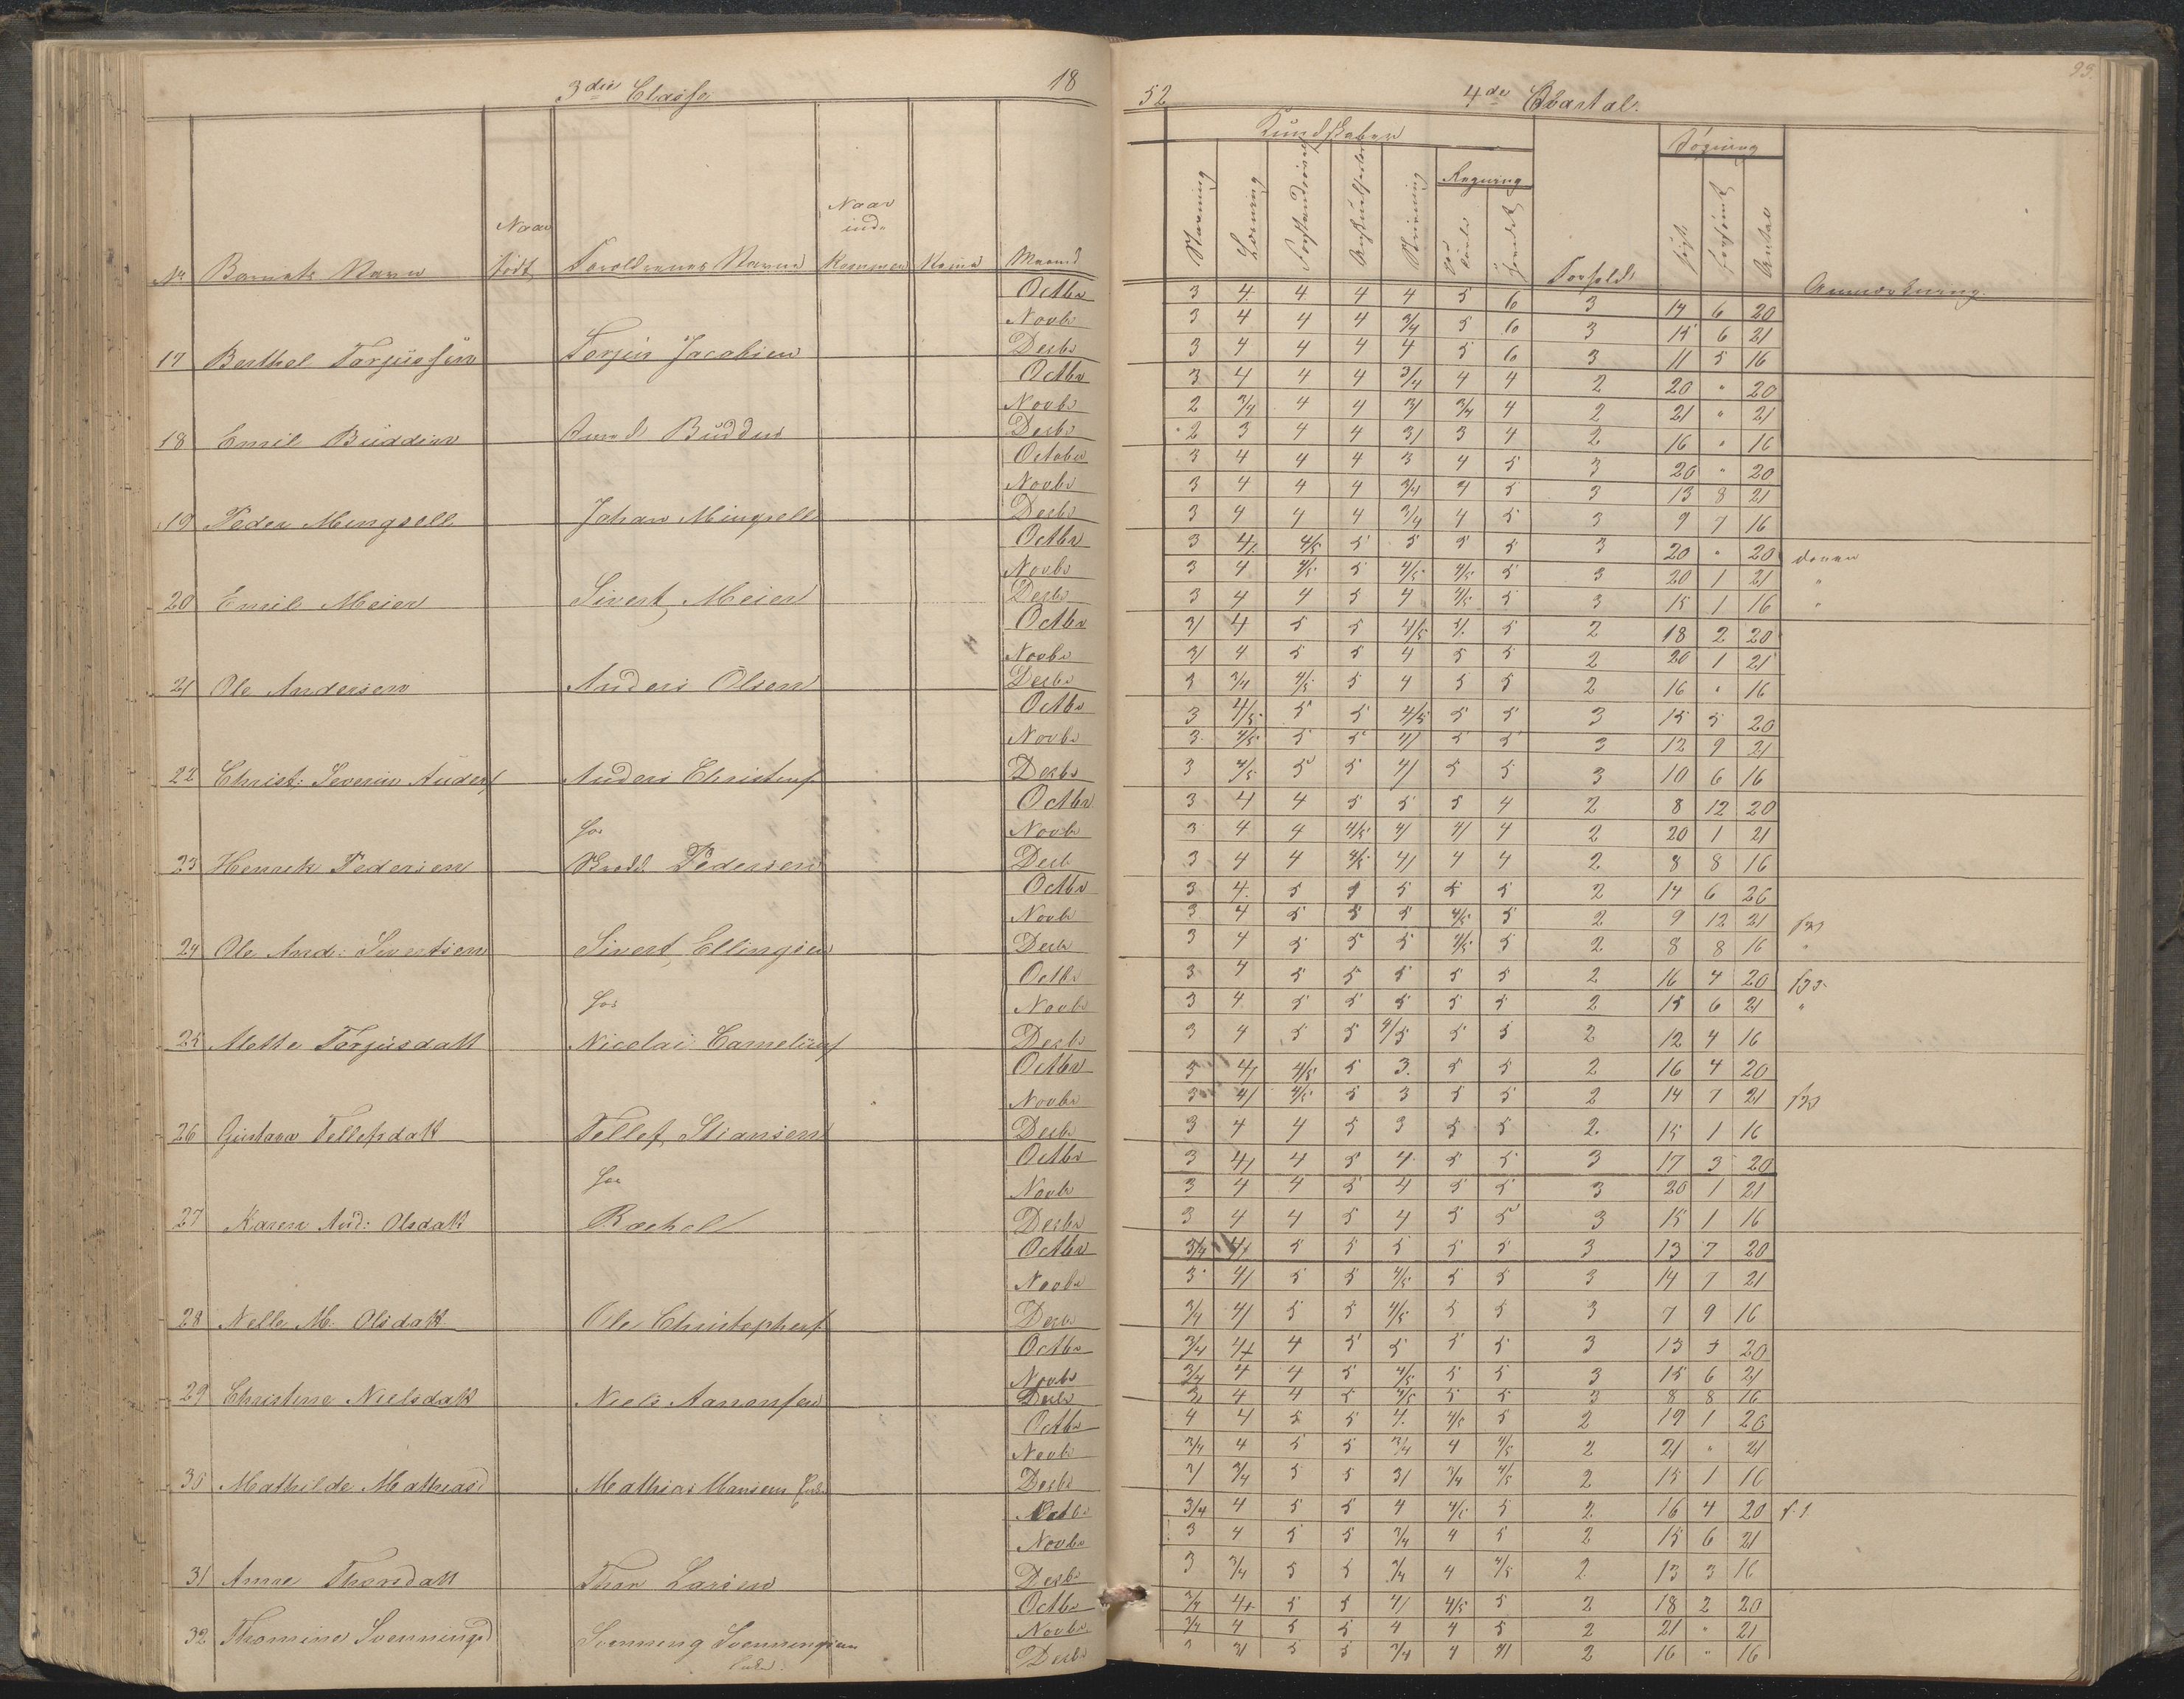 3die Classe 18
52 4de Qvartal. 93.
Kundskaber Søgning
Regning
No Barnets Navn Naar født Forældrenes Navne Naar ind- Kommen Maaned
Stavning Læsning Skrivning Forhold Anmærkning.
Octbr 3 4 4 4 4 5 6 3 14 6 20
Novbr 3 4 4 4 3/4 5 6 3 15 6 21
17 Berthel Torjusen Torjus Jacobsen Decbr 3 4 4 4 4 5 6 3 11 5 16
Octbr 3 4 4 4 3/4 4 4 2 20 " 20
Novbr 2 3/4 4 4 3/ 3/4 4 2 21 " 21
18 Emil Budden Budden Decbr 2 3 4 4 3/ 3 4 2 16 " 16
October 3 4 4 4 3 4 5 3 20 " 20
Novbr 3 4 4 4 3/4 4 5 3 13 8 21
19 Peder Mengsell Johan Mingsell Decbr 3 4 4 4 3/4 4 5 3 9 7 16
Octbr 3 4/. 4/5 5 5 5 5 3 20 " 20
Novbr 3 4 4/5 5 4/5 4/5 5 3 20 1 21 "
20 Emil Meier Sivert Meier Decbr 3 4 4 5 4 4/5 5 3 15 1 16 "
Octbr 3/ 4 5 5 4/5 5/. 5 2 18 2 20
Novbr 3/ 4 5 5 4 5 5 2 20 1 21
21 Ole Andersen Anders Olsen Decbr 3 3/4 4/5 5 4 5 5 2 16 " 16
Octbr 3 4/5 5 5 4/5 5 5 3 15 5 20
Novbr 3 4/5 5 5 4/ 5 5 3 12 9 21
22 Christ: Severin Anders Anders Christens Decbr 3 4/5 5 5 4/ 5 5 3 10 6 16
Octbr 3 4 4 5 5 5 4 2 8 12 20
hos Novbr 3 4 4 4/5 4/ 4/ 4 2 20 1 21
23 Henrik Pedersen Pedersen Decb 3 4 4 4/5 4/ 4 4 2 8 8 16
Octbr 3 4 5 5 5 5 5 2 14 6 20
Novbr 3 4 5 5 5 4/5 5 2 9 12 21
24 Ole And: Sivertsen Sivert Ellingsen Decbr 3 4 5 5 5 4/5 5 2 8 8 16 "
Octbr 3 4 5 5 5 5 5 2 16 4 20
hos Novbr 3 4 5 5 5 5 5 2 15 6 21 "
25 Alette Torjusdatt Nicolai Cornelius Decbr 3 4 5 5 4/5 5 5 2 12 4 16
Octbr 3 4/ 4/5 5 3. 5 5 2 16 4 20
Novbr 3 4/ 4/5 5 3 5 5 2 14 7 21
26 Gustava Tellefsdatt Tellef Stiansen Decbr 3 4 4 5 3 5 5 2. 15 1 16
Octbr 3 4/ 4 5 4 5 5 3 17 3 20
hos Novbr 3 4 4 5 4 5 5 3 20 1 21
27 Karen And: Olsdatt Rachel Decbr 3 4 4 5 4 5 5 3 15 1 16
Octbr 3/4 4+ 5 5 5 5 5 3 13 7 20
Novbr 3 4/ 5 5 4/5 5 5 3 14 7 21
28 Nelle M. Olsdatt Ole Christophers Decbr 3/4 4/ 5 5 4/5 5 5 3 7 9 16
Octbr 3/4 4+ 4 5 5 5 5 3 20
Novbr 3/4 4 4 5 4/5 5 5 3 15 6 21
29 Christine Nielsdatt Niels Aanonsen Decbr 3/ 4 4 5 4/5 5 5 3 8 8 16
Octbr 4 4 5 5 4. 4/5 5 2 19 1 20
Novbr 3/4 4 5 5 3/4 4 4/5 2 21 " 21
30 Mathilde Mathiasd Mathias Hansen Decbr 3/ 3/4 5 5 3/ 3/4 4/5 2 15 1 16
Octbr 3/4 4 5 5 4 4/5 5 2 16 4 20
Novbr 3 4 5 5 3/4 4 5 2 15 6 21
31 Anne Thorsdatt Thor Larsen Decbr 3 3/4 5 5 3/4 4 4/5 2 13 3 16
Octbr 3/4 4+ 5 5 4/ 4/5 5 2 18 2 20
Novbr 3/4 4 5 5 4 4 5 2 21 " 21
32 Thomine Svenningsd Svenning Svenningsen Decbr 3 3/ 5 5 3/4 4 4/ 2 16 " 16